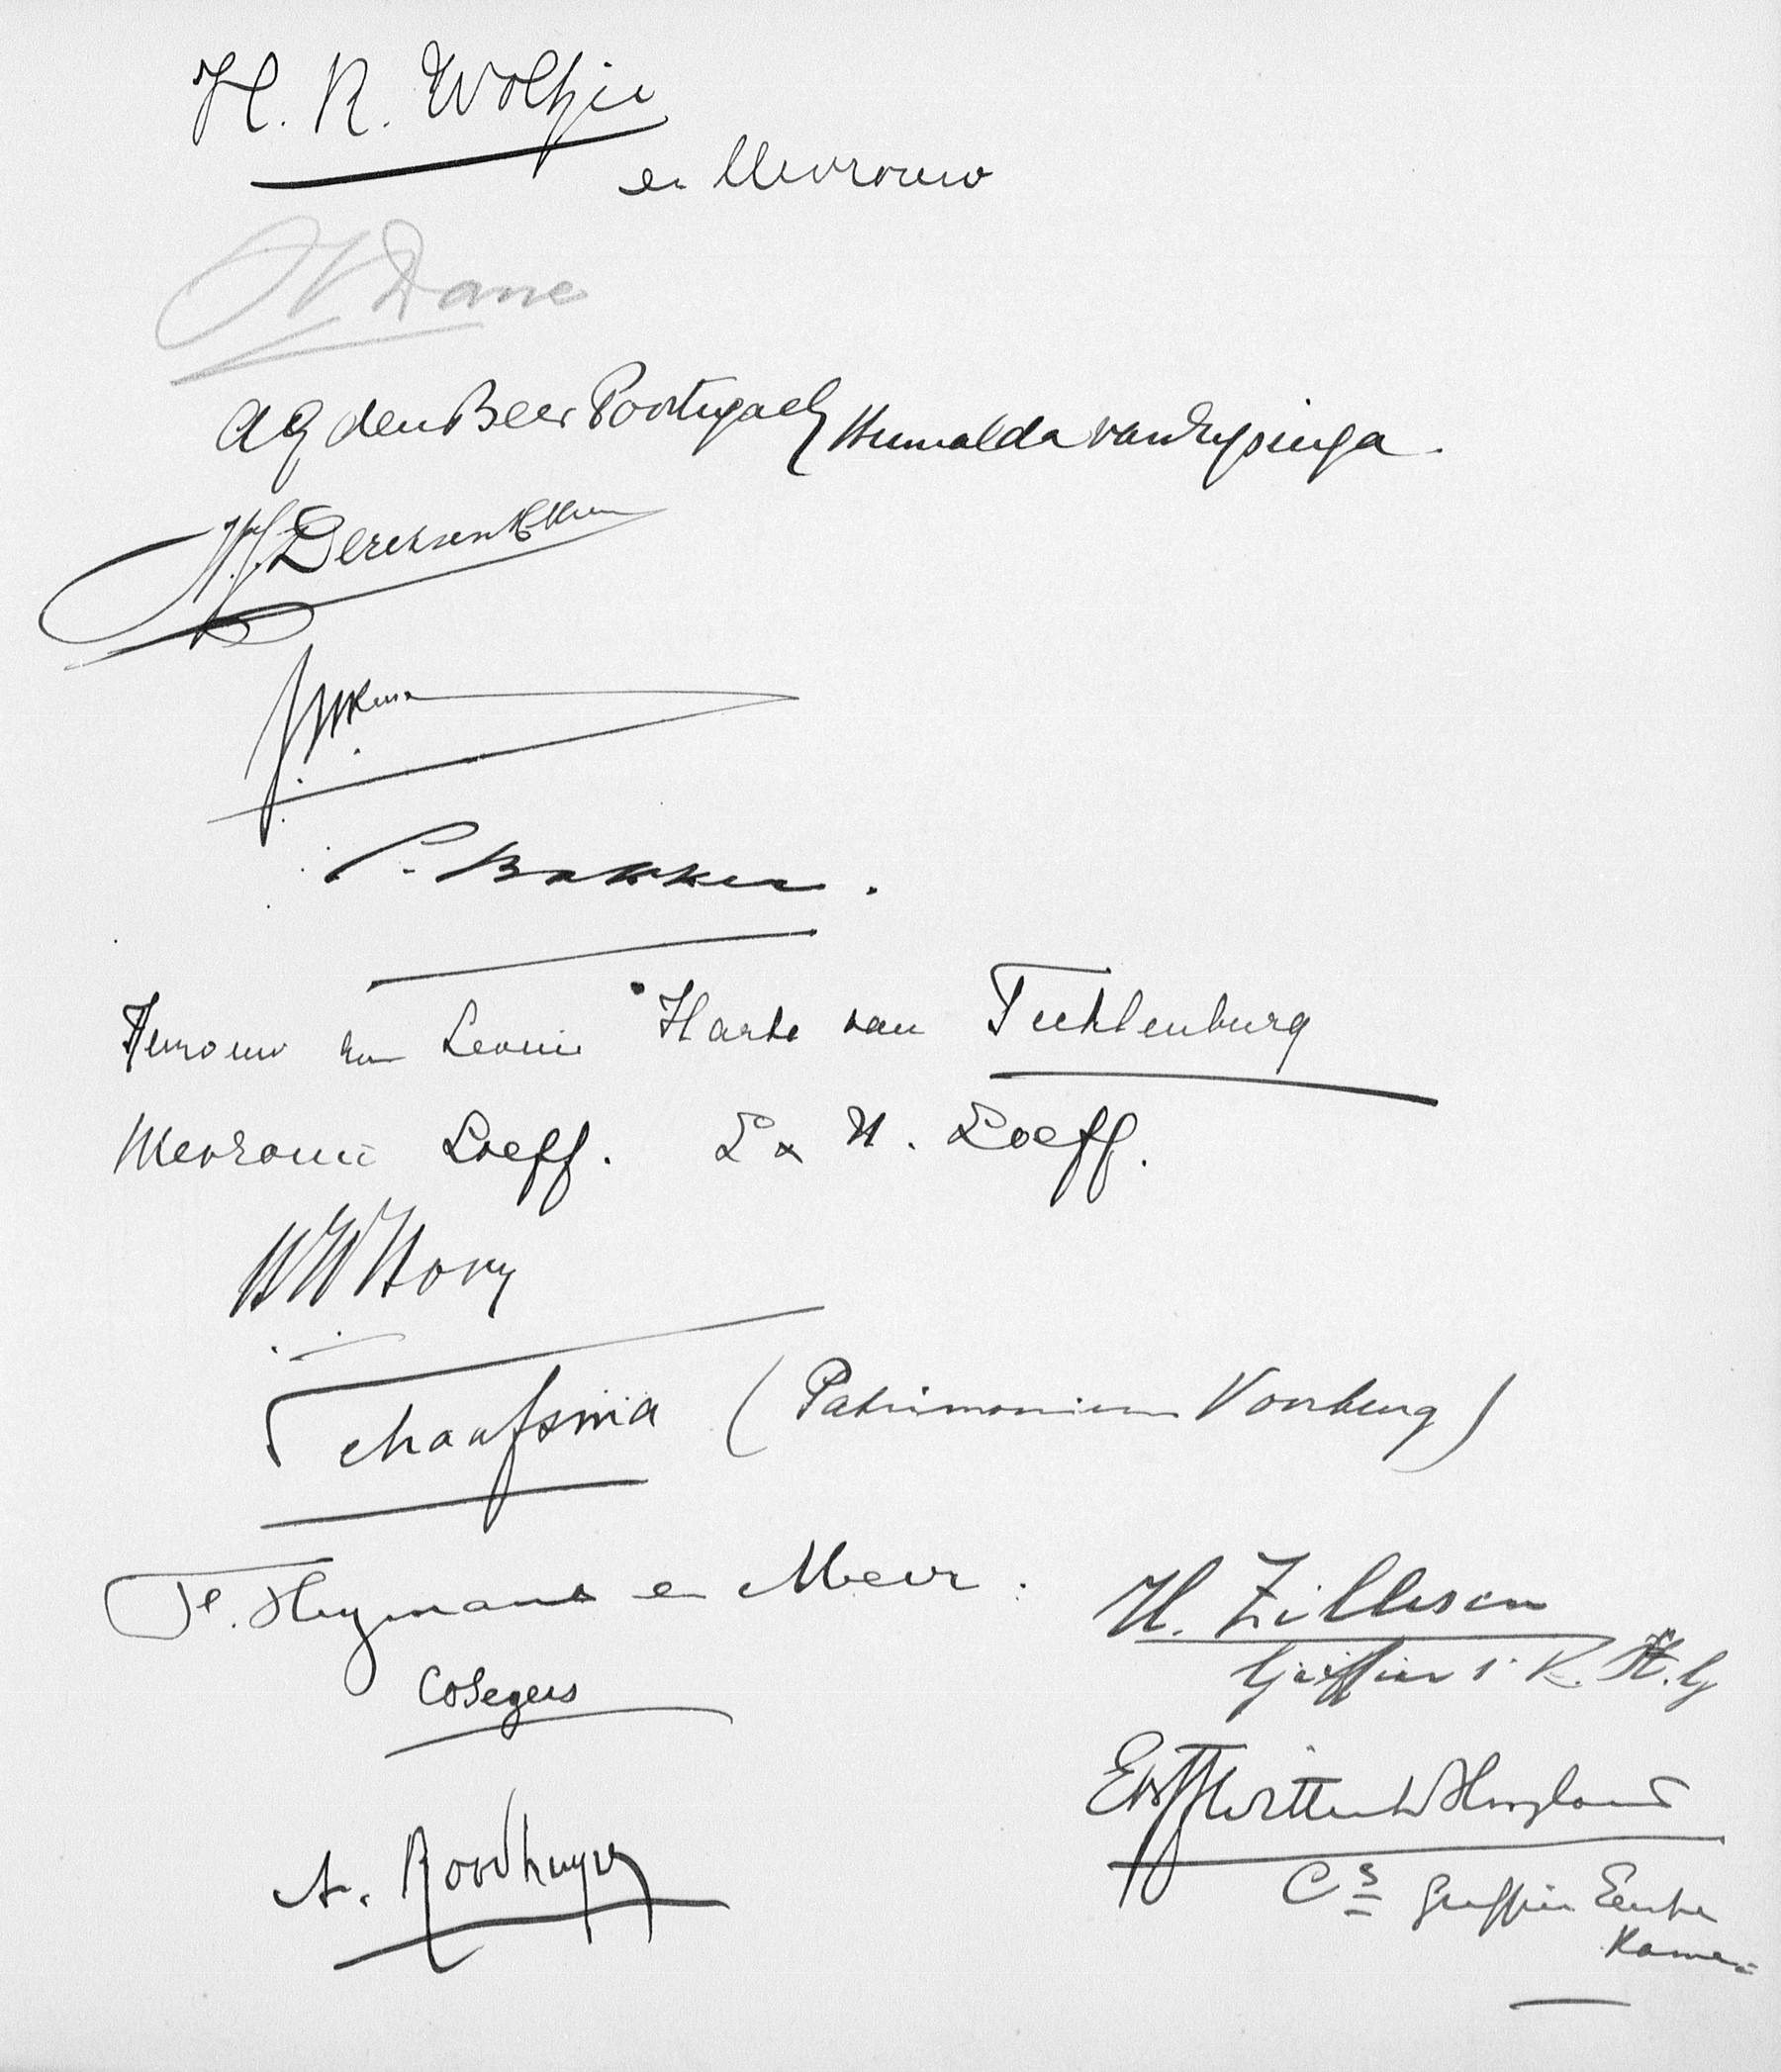 H. R. Woltjer
en Mevrouw
Dane
den Beer Poortugael Humalda van Eysinga.
Derksen
P. Bakker.
Mevrouw en Leonie Harte van Tecklenburg
Mevrouw Loeff. L & H. Loeff.
Hovy
Tehaafsma (Patrimonium Voorburg)
Heymans en Mevr.
Segers
A. Roodhuyzen
H. Zillesen
Griffier K. St. G
Hoogland
Cs Griffier Eerste
Kamer